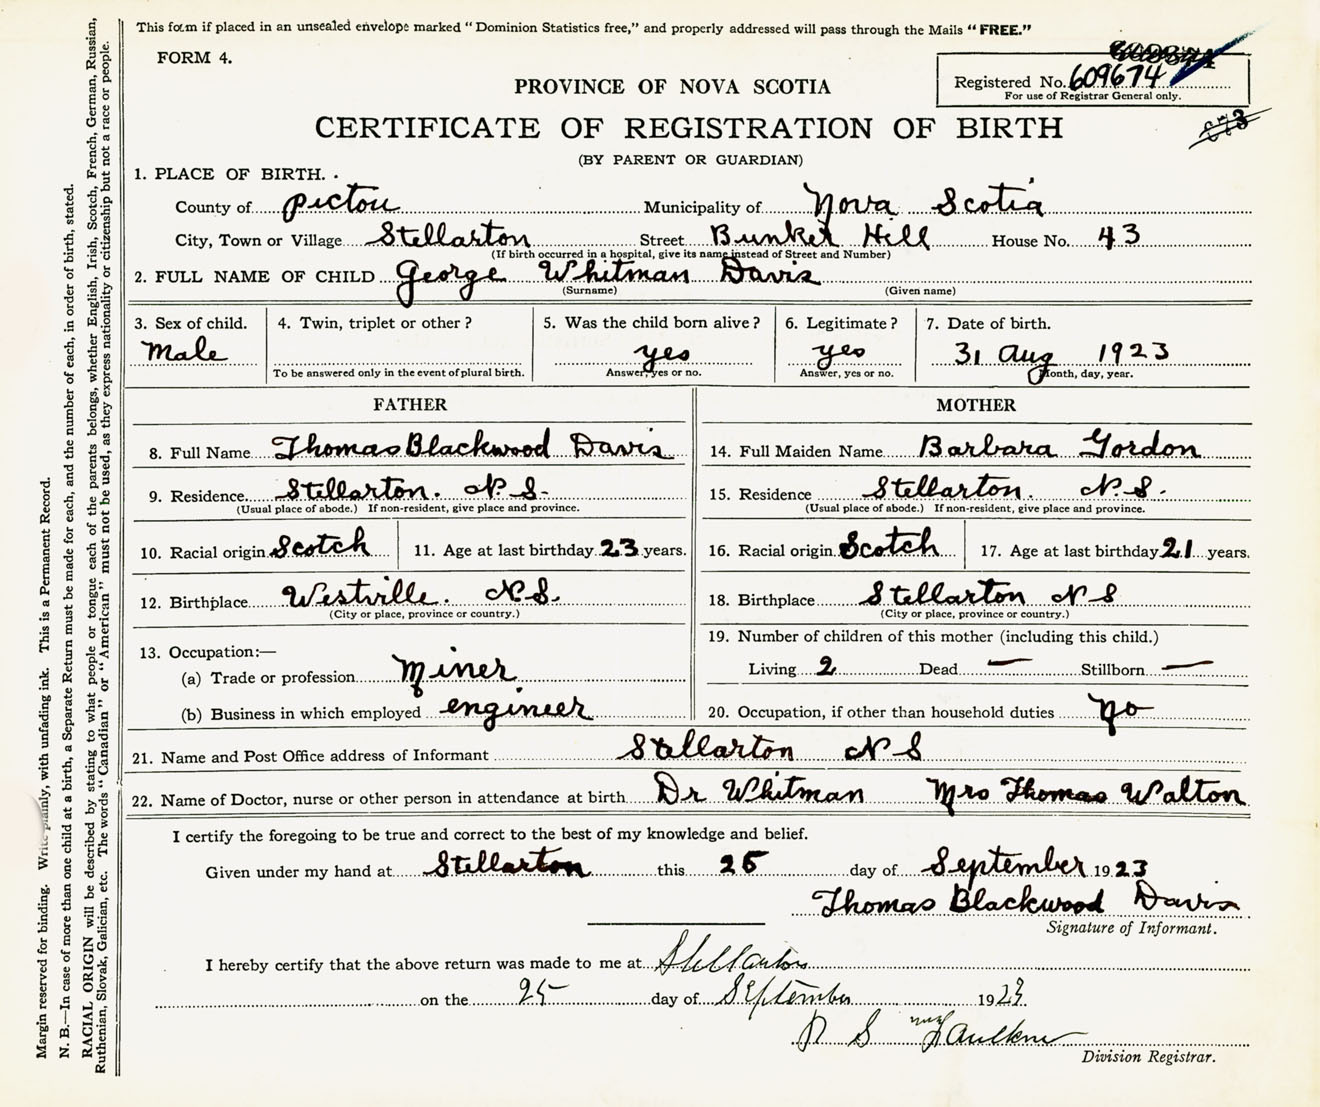 This form if placed in an unsealed envelope marked "Dominion Statistics free," and properly addressed will pass through the Mails "FREE."
FORM 4.
Registered No. 609674
For use of Registrar General only.
PROVINCE OF NOVA SCOTIA
CERTIFICATE OF REGISTRATION OF BIRTH
(BY PARENT OR GUARDIAN)
1. PLACE OF BIRTH.
County of Pictou Municipality of Nova Scotia
City, Town or Village Stellarton Street Bunker Hill House No. 43
(If birth occurred in a hospital, give its name instead of Street and Number)
2. FULL NAME OF CHILD George Whitman Davis
(Surname) (Given name)
3. Sex of child. 4. Twin, triplet or other? 5. Was the child born alive? 6. Legitimate? 7. Date of birth.
Male yes yes 31 Aug 1923
To be answered only in the event of plural birth. Answer, yes or no. Answer, yes or no. Month, day, year.
FATHER MOTHER
8. Full Name Thomas Blackwood Davis 14. Full Maiden Name Barbara Gordon
9. Residence Stellarton. N.S. 15. Residence Stellarton. N.S.
(Usual place of abode.) If non-resident, give place and province. (Usual place of abode.) If non-resident, give place and province.
10. Racial origin Scotch 11. Age at last birthday 23 years. 16. Racial origin Scotch 17. Age at last birthday 21 years.
12. Birthplace Westville. N.S. 18. Birthplace Stellarton N S
(City or place, province or country.) (City or place, province or country.)
19. Number of children of this mother (including this child.)
13. Occupation:—
Living 2 Dead — Stillborn —
(a) Trade or profession Miner
(b) Business in which employed engineer 20. Occupation, if other than household duties No
21. Name and Post Office address of Informant Stellarton N S
22. Name of Doctor, nurse or other person in attendance at birth Dr Whitman Mrs Thomas Walton
I certify the foregoing to be true and correct to the best of my knowledge and belief.
Given under my hand at Stellarton this 25 day of September 1923
Thomas Blackwood Davis
Signature of Informant.
I hereby certify that the above return was made to me at Stellarton
on the 25 day of September 1923
Faulkner
Division Registrar.
Margin reserved for binding. Write plainly, with unfading ink. This is a Permanent Record.
N. B.—In case of more than one child at a birth, a Separate Return must be made for each, and the number of each, in order of birth, stated.
RACIAL ORIGIN will be described by stating to what people or tongue each of the parents belongs, whether English, Irish, Scotch, French, German, Russian,
Ruthenian, Slovak, Galician, etc. The words "Canadian" or "American" must not be used, as they express nationality or citizenship but not a race or people.